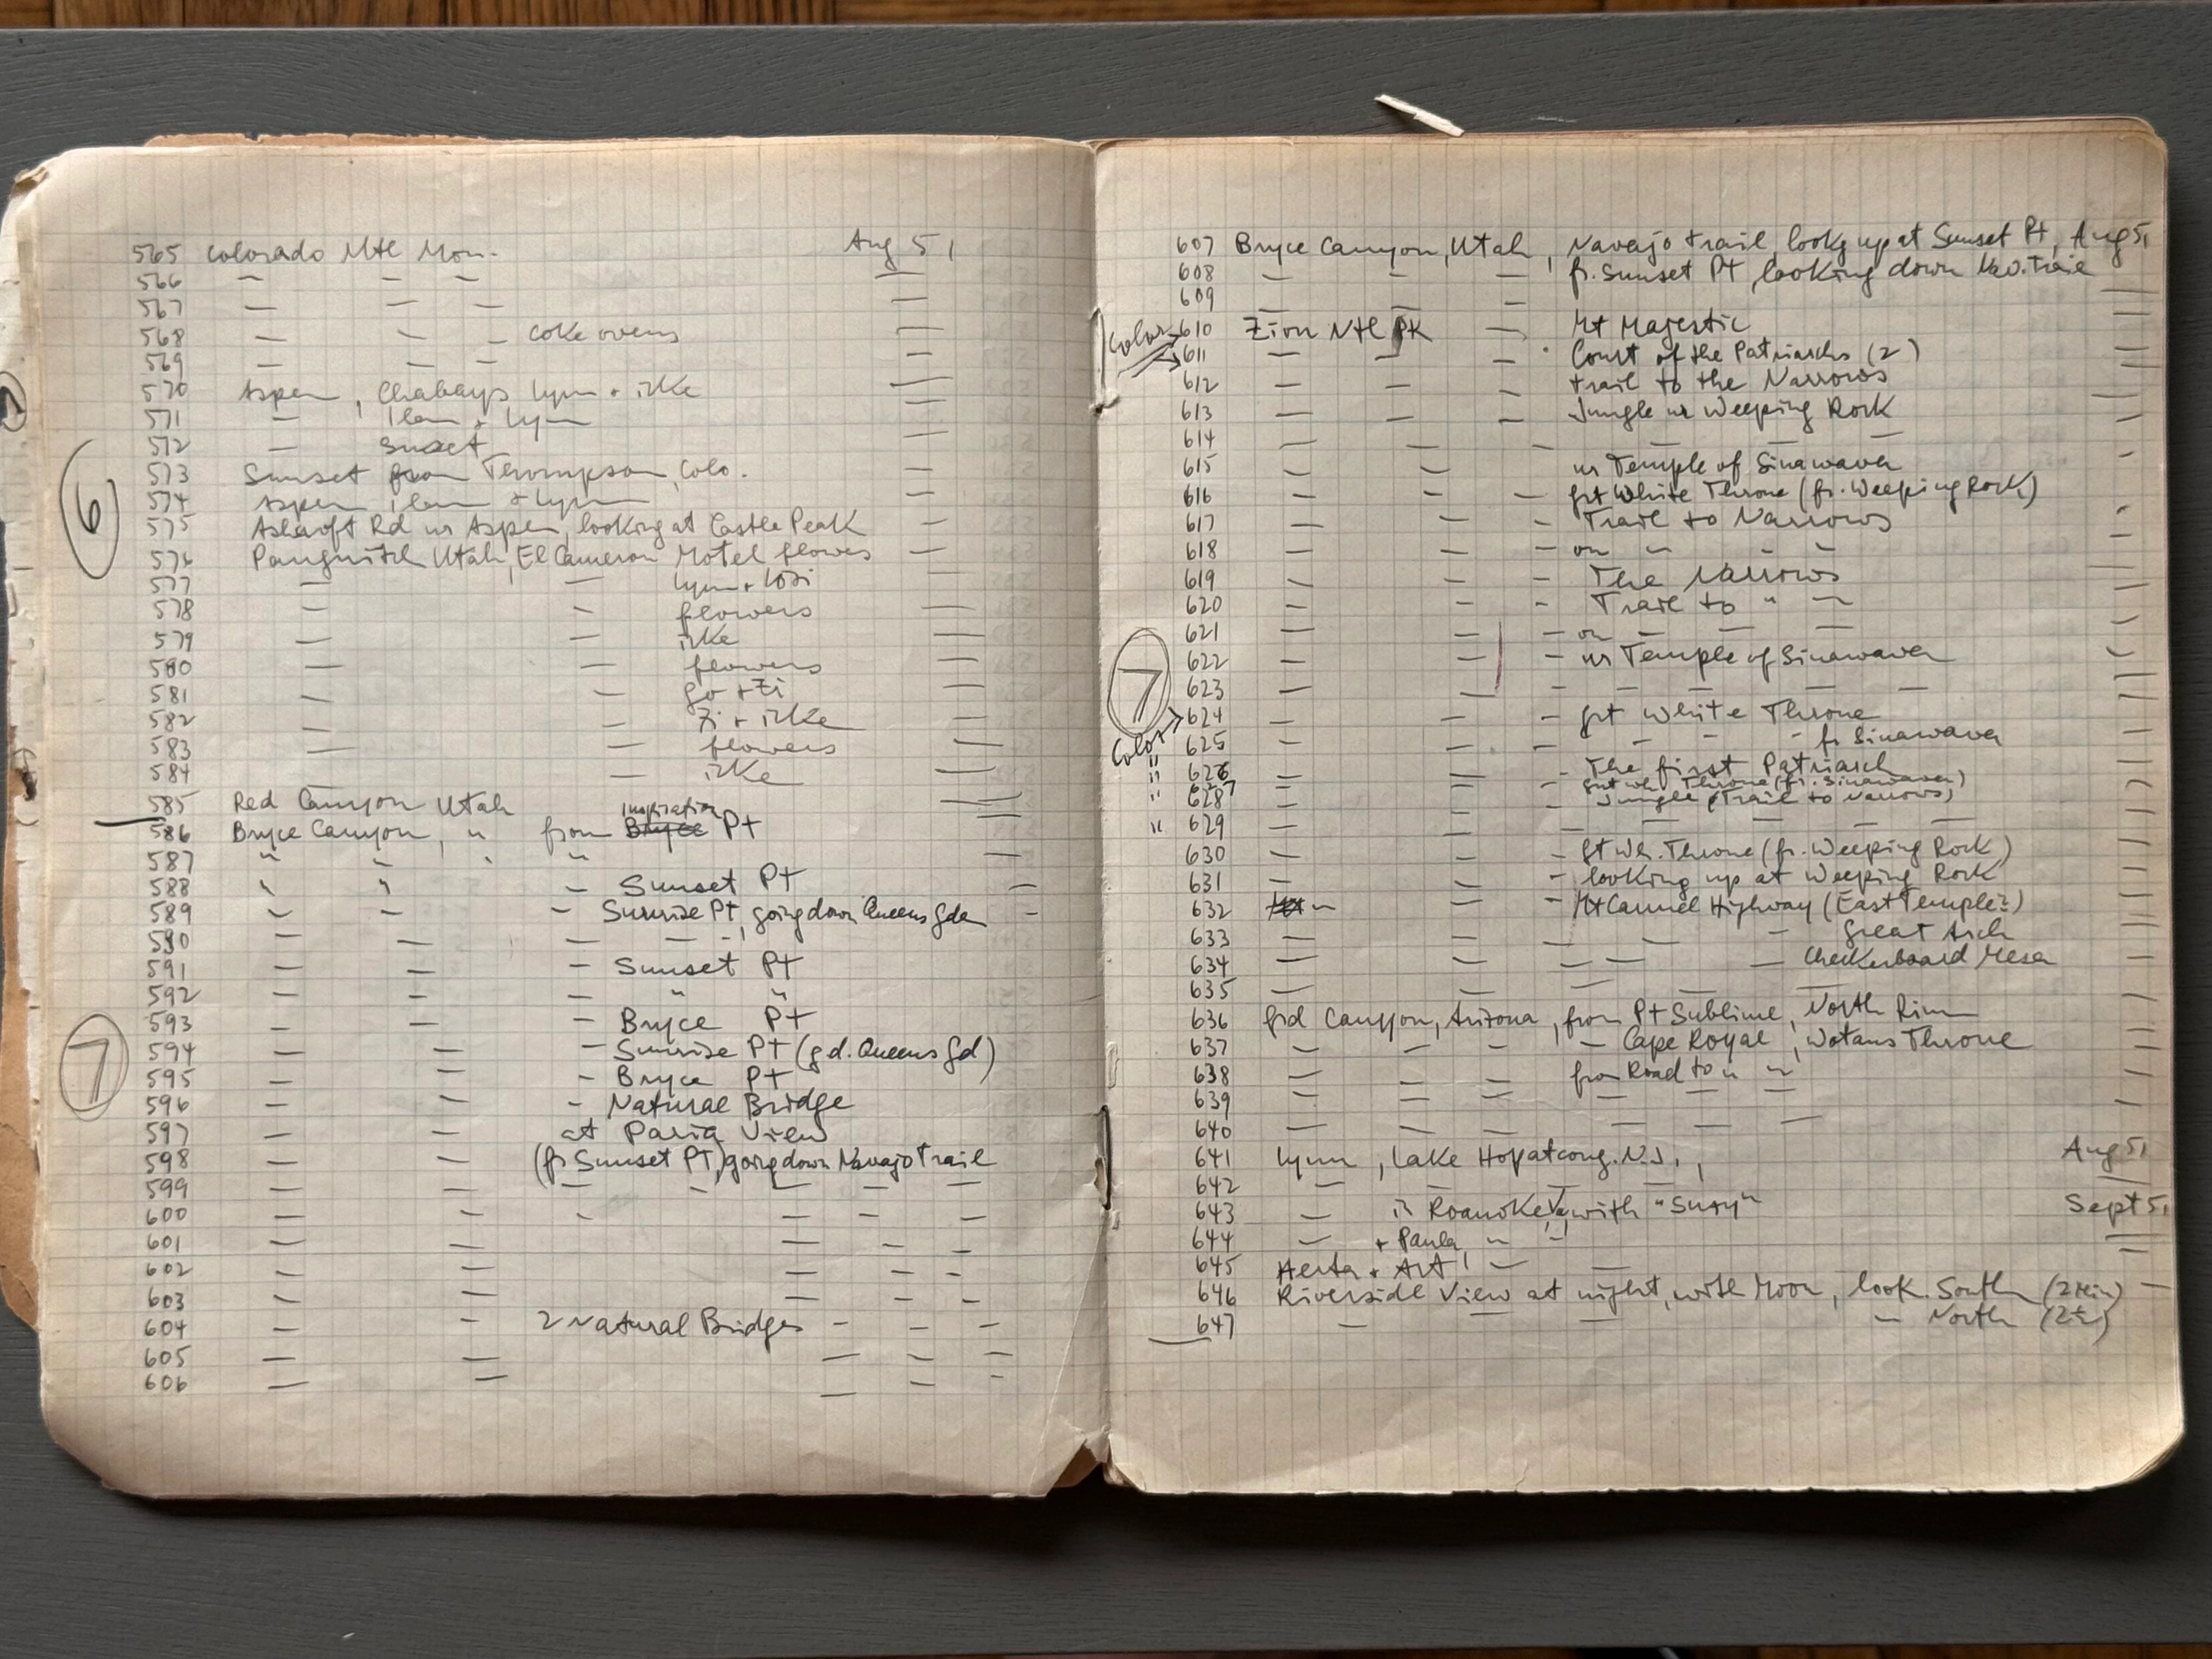 565 Colorado Ntl Mon. Aug 51
566 — — — —
567 — — — —
568 — — — coke ovens —
569 — — — —
570 Aspen, Lynn + ilke —
571 — Ilam + Lynn —
572 — Sunset —
573 Sunset from Thompson, Colo. —
574 Aspen Ilam + Lynn —
575 Ashcroft Rd nr Aspen, looking at Castle Peak —
576 Panguitch Utah, El Cameron Motel flowers —
577 — — Lynn + —
578 — — flowers —
579 — — ilke —
580 — — flowers —
581 — — + Zi —
582 — — Zi + ilke —
583 — — flowers —
584 — ilke —
585 Red Canyon Utah —
Inspiration
586 Bryce Canyon, " from Bryce Pt —
587 " " " —
588 " " — Sunset Pt —
589 — — — Sunrise Pt, going down Queens Gdn —
590 — — — — — —
591 — — — Sunset Pt
592 — — — " "
593 — — — Bryce Pt
594 — — — Sunrise Pt (gd. Queens Gd)
595 — — — Bryce Pt
596 — — — Natural Bridge
597 — — at Paria View
598 — — (fr Sunset Pt) going down Navajo Trail
599 — — — — — — —
600 — — — — — —
601 — — — — —
602 — — — — —
603 — — — — —
604 — — 2 Natural Bridges — — —
605 — — — — —
606 — — — — —
6
7
607 Bryce Canyon, Utah, Navajo trail, lookg up at Sunset Pt, Aug 51
608 — — — fr. Sunset Pt, looking down Nav. Trail —
609 — — — —
Color → 610 Zion Ntl Pk — Mt Majestic —
→ 611 — — — Court of the Patriarchs (2) —
612 — — — trail to the Narrows —
613 — — — Jungle nr Weeping Rock —
614 — — — — — — —
615 — — nr Temple of Sinawava —
616 — — — grt White Throne (fr. Weeping Rock)
617 — — — Trail to Narrows
618 — — — on — — —
619 — — — The Narrows —
620 — — — Trail to " — —
621 — — — on — — — —
622 — — — nr Temple of Sinawava —
623 — — — — — — —
7
Color → 624 — — — grt White Throne —
625 — — — — — fr Sinawava —
" 626 — — — The first Patriarch —
" 627 — grt wh Throne (fr. Sinawava)
" 628 — — — Jungle (Trail to Narrows) —
" 629 — — — — — — —
630 — — — gt Wh. Throne (fr. Weeping Rock) —
631 — — — looking up at Weeping Rock —
632 — — — Mt Carmel Highway (East Temple?) —
633 — — — — — Great Arch —
634 — — — — — Checkerboard Mesa —
635 — — — — — — —
636 Grd Canyon, Arizona, from Pt Sublime, North Rim —
637 — — — — Cape Royal, Wotans Throne —
638 — — — from Road to " " —
639 — — — — — — —
640 — — — — — —
641 Lynn, Lake Hopatcong. N.J., Aug 51
642 — — — — —
643 — in Roanoke Va, with "Susy" Sept 51
644 — + Paula, " — —
645 Herta + Art, — — —
646 Riverside View at night, with Moon, look. South (2 Min) —
647 — — — — North (2½)